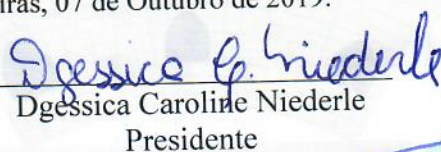 iras, 07 de Outubro de 2019.
Dgessica C. Niederle
Dgessica Caroline Niederle
Presidente